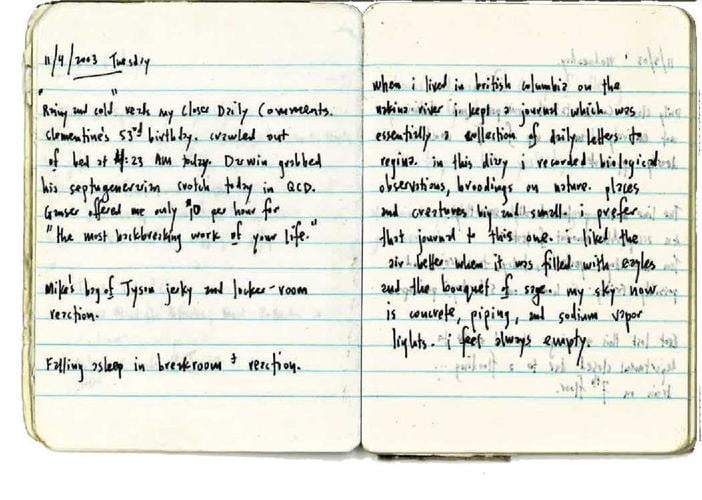 11/4/2003 Tuesday
"Rainy and cold" reads my Closer Daily Comments.
Clementine's 53rd birthday. crawled out
of bed at 4:23 AM today. Darwin grabbed
his septugenerian crotch today in QCD.
Ganser offered me only $10 per hour for
"the most backbreaking work of your life."
Mike's bag of Tyson jerky and locker-room
reaction.
Falling asleep in breakroom & reaction.
when i lived in british columbia on the
nakina river i kept a journal which was
essentially a collection of daily letters to
regina. in this diary i recorded biological
observations, broodings on nature. places
and creatures big and small. i prefer
that journal to this one. i liked the
air better when it was filled with eagles
and the bouquet of sage. my sky now
is concrete, piping, and sodium vapor
lights. i feel always empty.